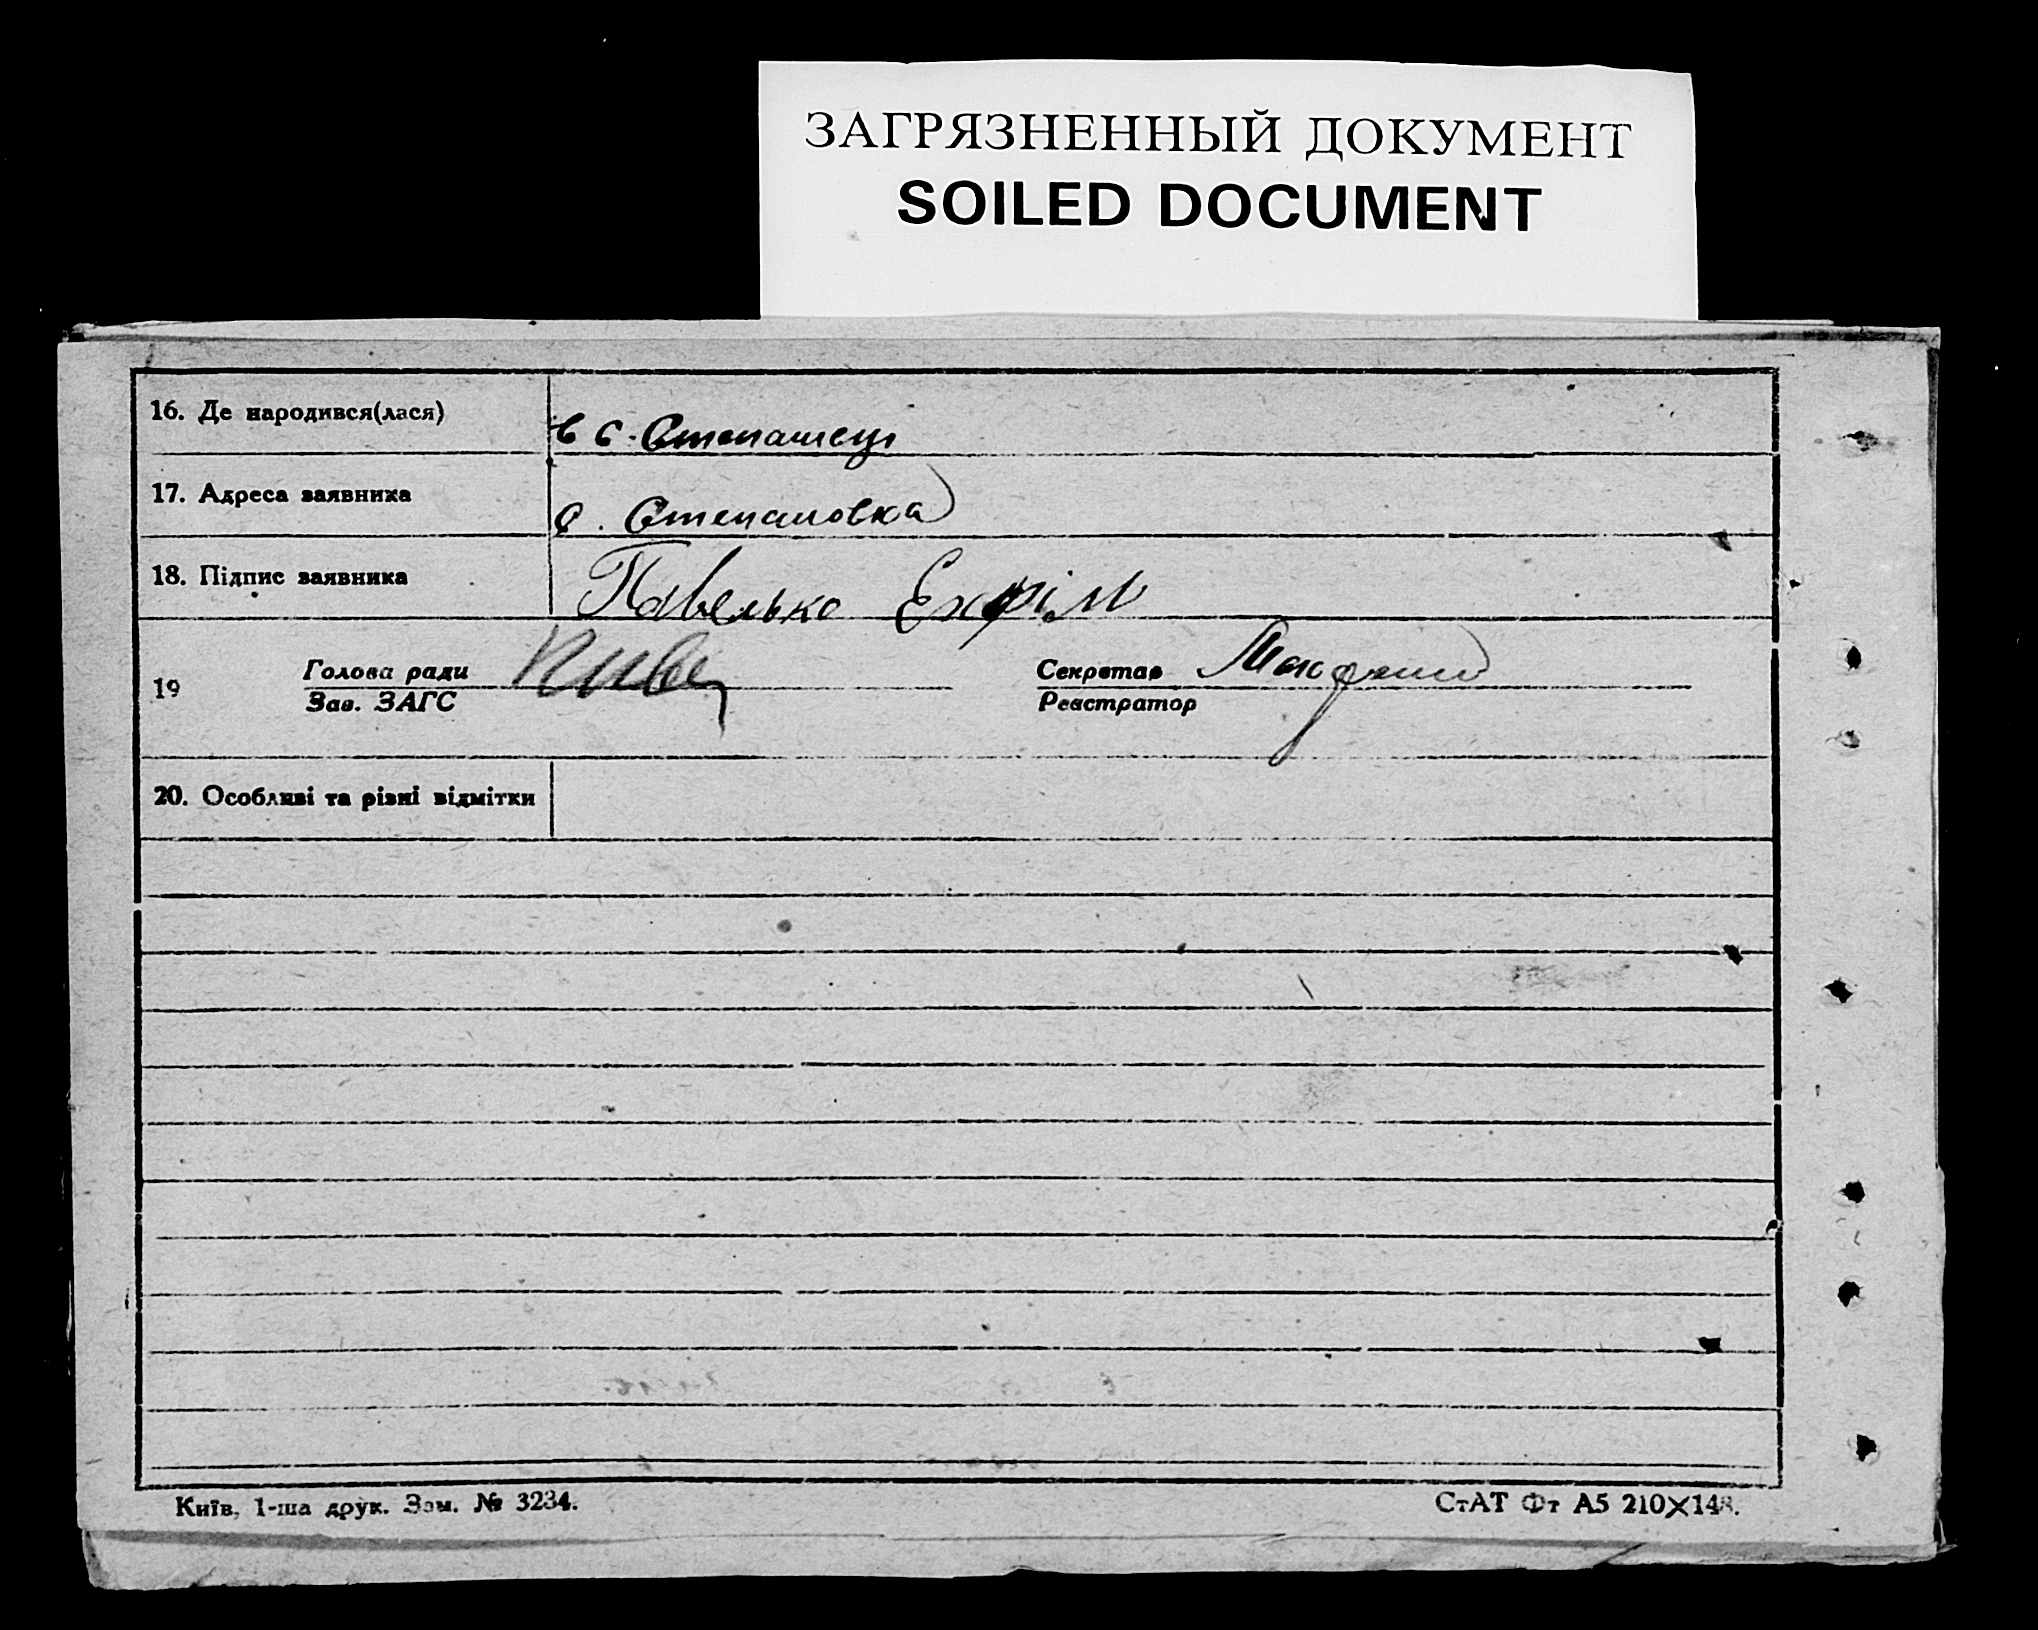 ЗАГРЯЗНЕННЫЙ ДОКУМЕНТ
SOILED DOCUMENT
16. Де народився(лася)
в с. Степашец
17. Адреса заявника
с. Степановка
18. Підпис заявника
Павелько Ехфім
19
Голова ради
Зав. ЗАГС
Секретар
Реєстратор
20. Особливі та різні відмітки
Київ, 1-ша друк. Зам. № 3234.
СтАТ Фт А5 210×148.